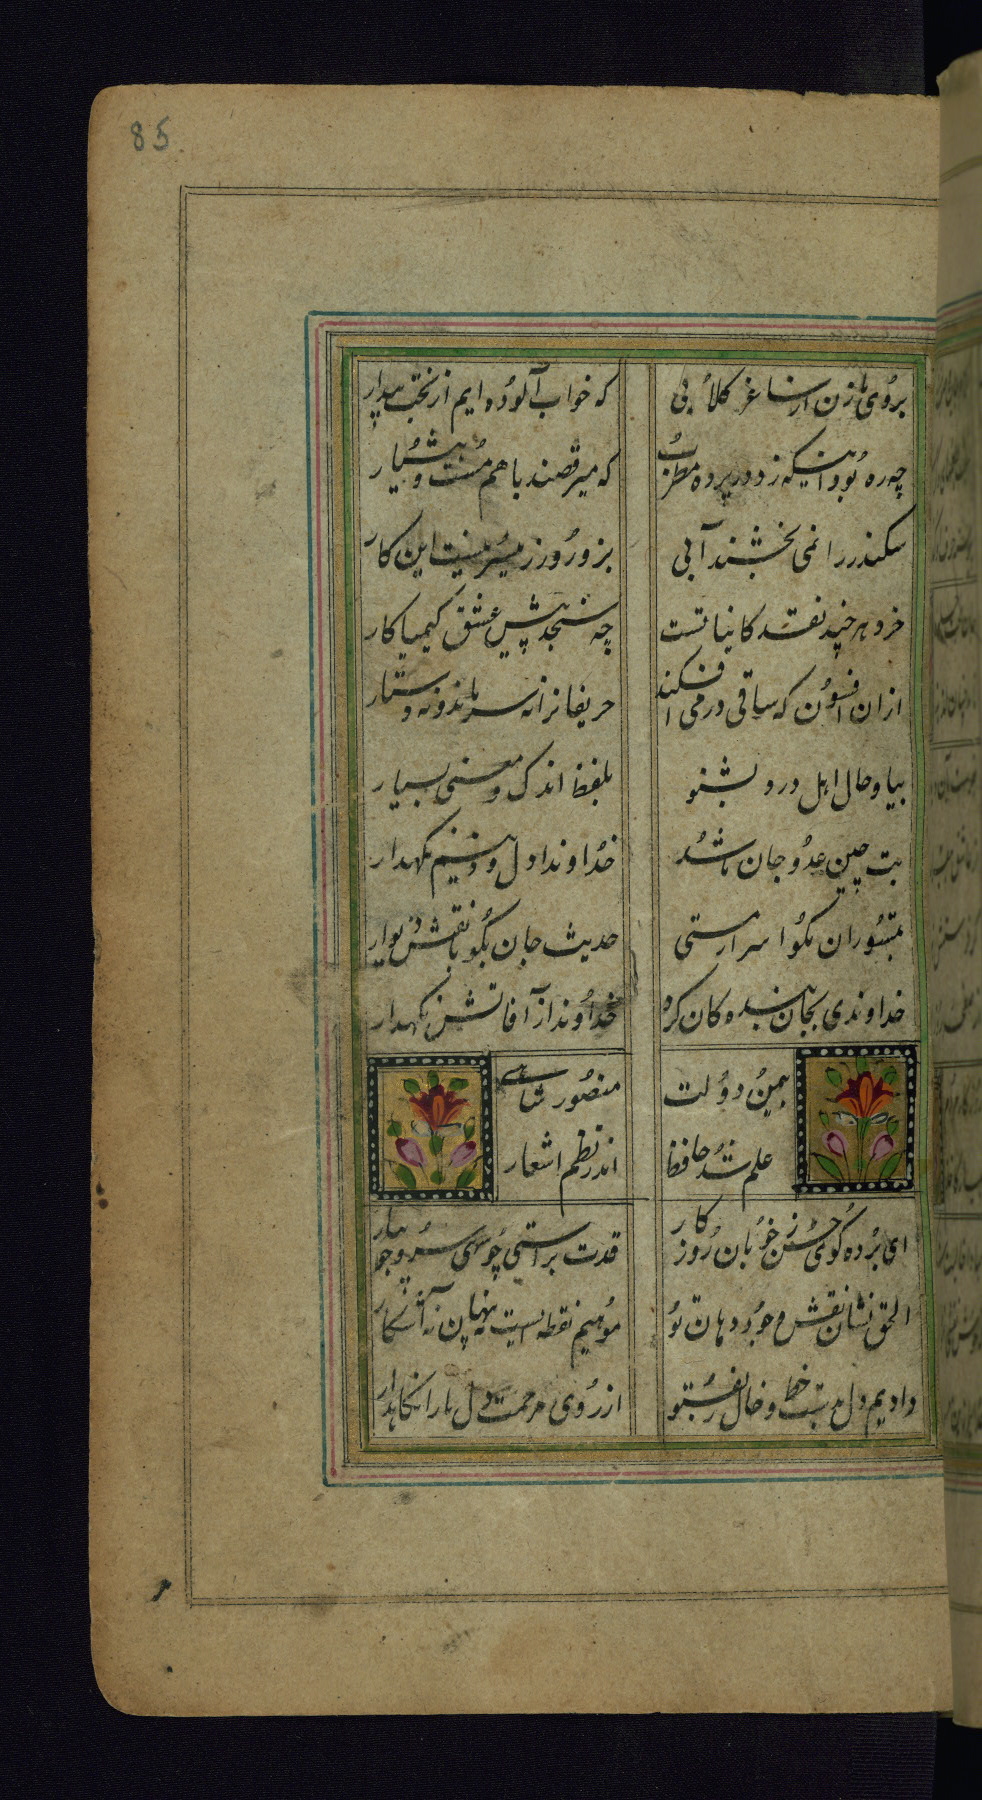 85
بروی ما زن از ساغر گلابی که خواب آلوده ایم از بخت بیدار
چه ره بود اینکه زد در پرده مطرب که میرقصند با هم مست و هشیار
سکندر را نمی بخشند آبی بزور و زر میسر نیست این کار
خرد هر چند نقد کایناتست چه سنجد پیش عشق کیمیا کار
ازان افسون که ساقی در می افکند حریفانرا نه سر ماند و نه دستار
بیا و حال اهل درد بشنو بلفظ اندک و معنی بسیار
بت چین عدو جان ما شد خداوندا دل و دینم نگهدار
بمستوران مگو اسرار مستی حدیث جان مگو با نقش دیوار
خداوندی بجان بنده کان کرد خداوندا ز آفاتش نگهدار
بیمن دولت منصور شاهی
علم شد حافظ اندر نظم اشعار
ای برده گوی حسن ز خوبان روز کار قدت براستی چو سهی سرو جویبار
الحق نشان نقش وجود دهان تو موهیم نقطه ایست نه پنهان نه آشکار
دادیم دل بدست خط و خال زلف تو از روی مرحمت دل ما را نگاهدار